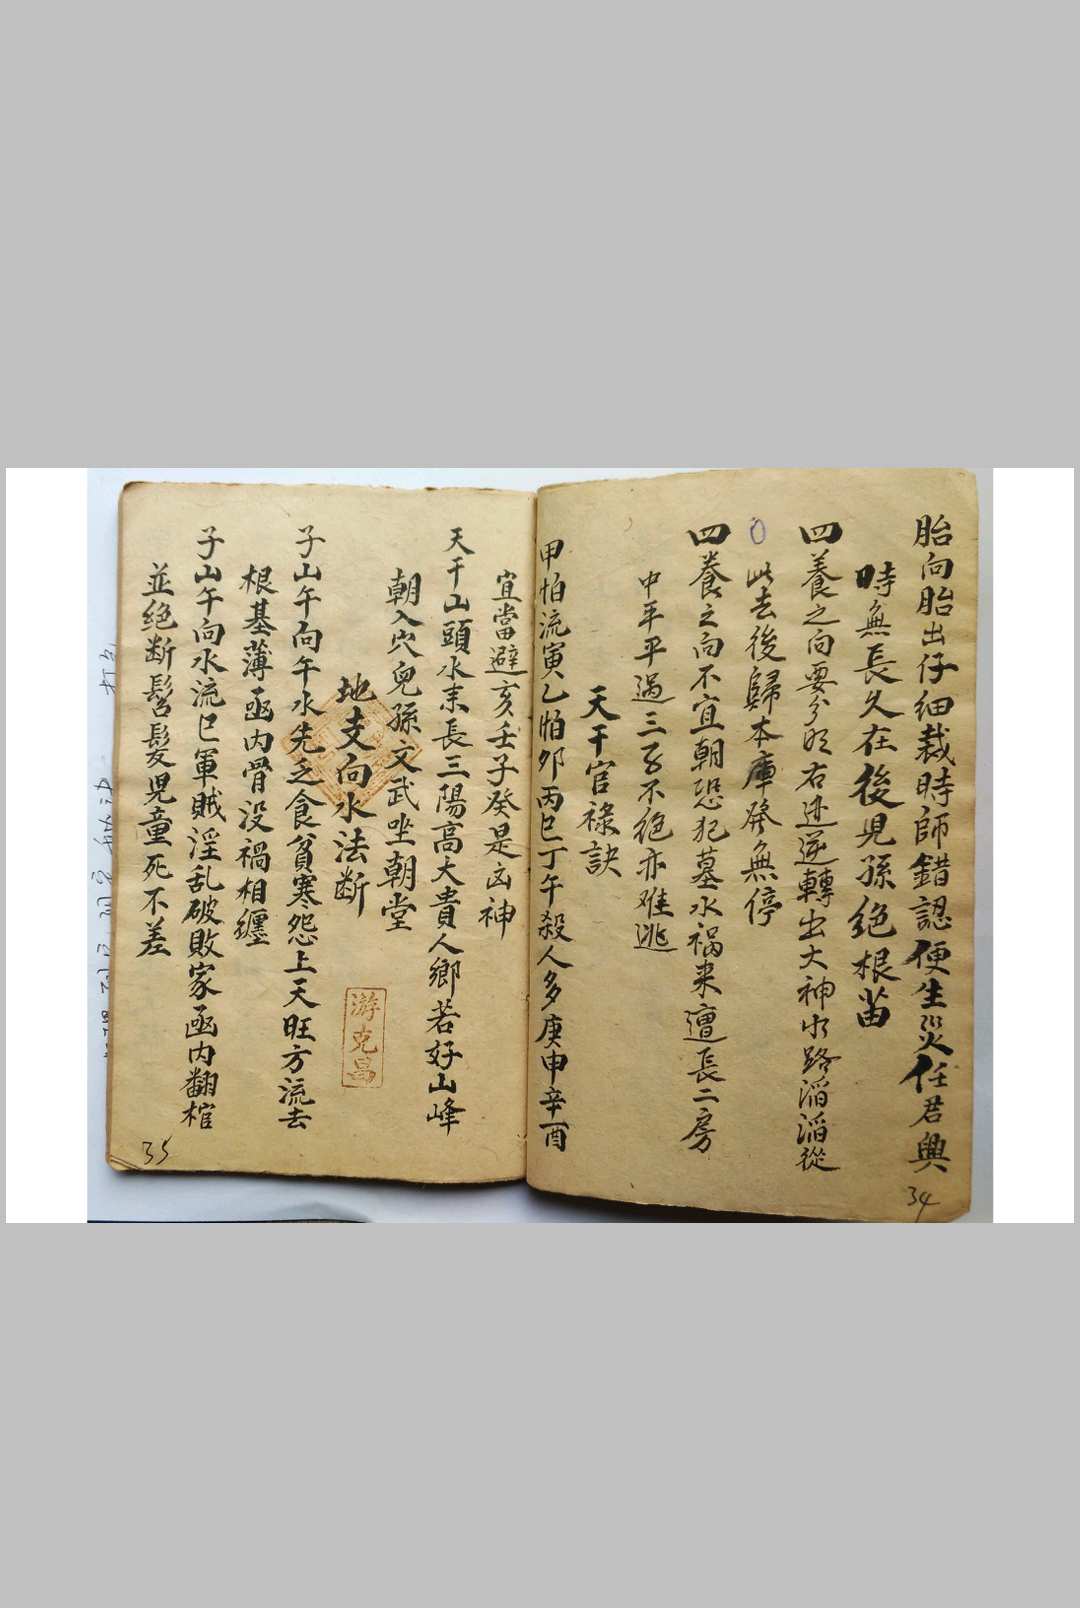 胎向胎出仔細裁時師錯認便生災任君興
時無長久在後見孫绝根苗
四養之向要分明右边逆轉出大神水路滔滔從
此去後歸本庫發無停
四養之向不宜朝恐犯墓水祸来遭長二房
中年平過三子不绝亦难逃
天干官祿訣
甲怕流寅乙怕夘丙巳丁午殺人多庚申辛酉
34
宜當避亥壬子癸是凶神
天干山頭水来長三陽高大貴人鄉若好山峰
朝入穴兒孫文武坐朝堂
地支向水法断
游克昌
子山午向午水先乏食貧寒怨上天旺方流去
根基薄凾内骨没禍相纏
子山午向水流巳軍賊淫乱破敗家凾内翻棺
並绝断髫髮児童死不差
35